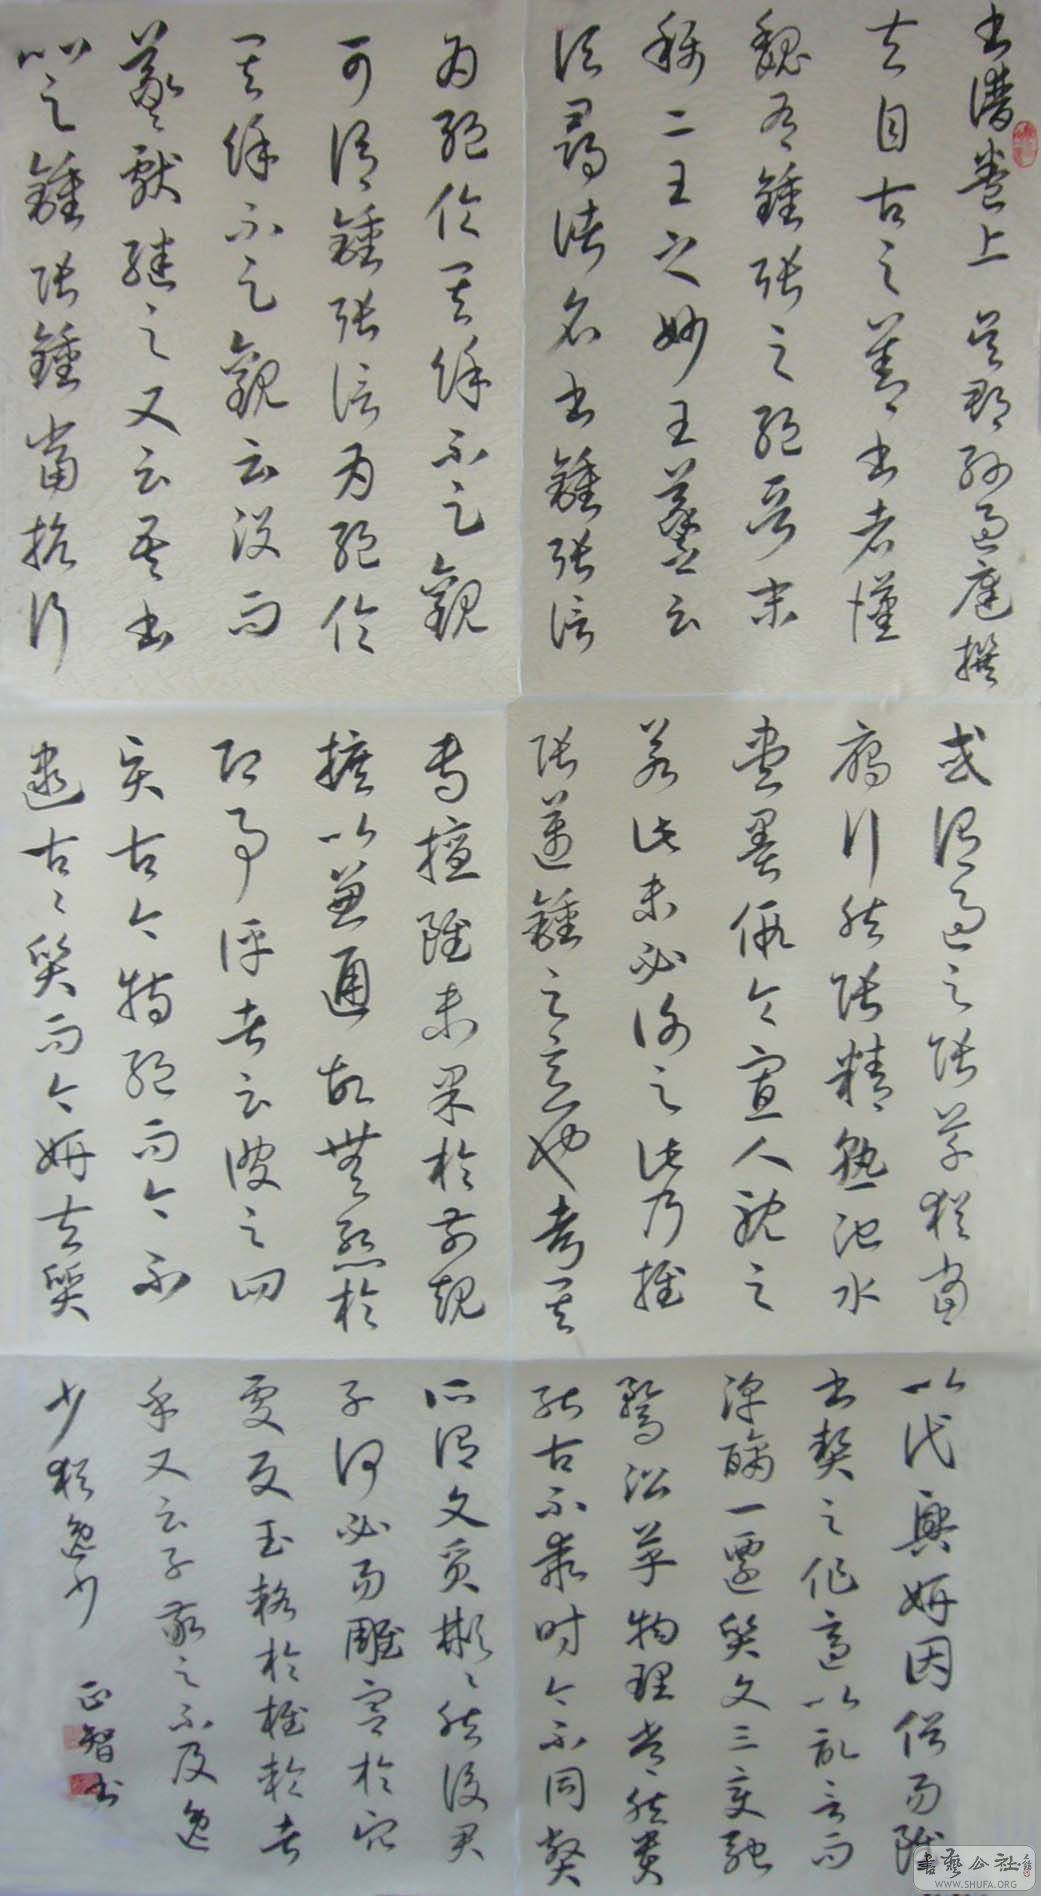 書譜卷上 吳郡孫過庭撰
夫自古之善書者漢
魏有鍾張之絕晉末
稱二王之妙王羲之云
頃尋諸名書鍾張信
為絕倫其餘不足觀
可謂鍾張信為絕倫
其餘不足觀云沒而
羲獻繼之又云吾書
比之鍾張鍾當抗行
或謂過之張草猶當
雁行然張精熟池水
盡墨假令寡人耽之
若此未必謝之此乃推
張邁鍾之意也考其
專擅雖未果於前規
摭以兼通故無慚於
即事評者云彼之四
賢古今特絕而今不
逮古〻質而今妍夫質
以代興妍因俗易雖
書契之作適以記言而
淳醨一遷質文三變馳
騖沿革物理常然貴
能古不乖時今不同弊
所謂文質彬〻然後君
子何必易雕宮於穴
處反玉輅於椎輪者
乎又云子敬之不及逸
少猶逸少
正智書
書藝公社
WWW.SHUFA.ORG